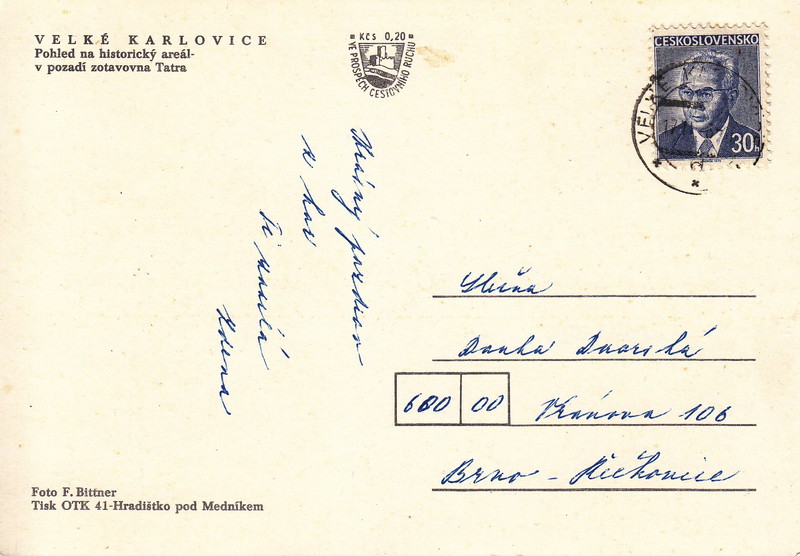 VELKÉ KARLOVICE
Pohled na historický areál-
v pozadí zotavovna Tatra
Kčs 0,20
VE PROSPĚCH CESTOVNÍHO RUCHU
ČESKOSLOVENSKO
30h
VELKÉ
Krásný pozdrav
z hor
Ti zasílá
Zdena
Slečna
Danka Dvorská
600 00 Vránova 106
Brno - Řečkovice
Foto F. Bittner
Tisk OTK 41-Hradištko pod Medníkem